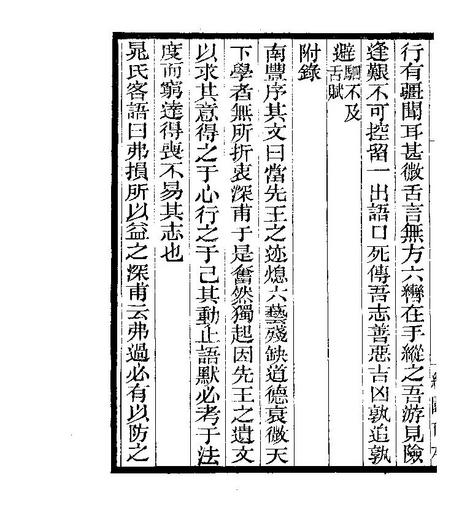 行有疆聞耳甚微舌言無方六轡在手縱之吾游見險
逢艱不可控留一出語口死傳吾志善惡吉凶孰追孰
避駟不及舌賦
附錄
南豐序其文曰當先王之迹熄六藝殘缺道德衰微天
下學者無所折衷深甫于是奮然獨起因先王之遺文
以求其意得之于心行之于己其動止語默必考于法
度而窮達得喪不易其志也
晁氏客語曰弗損所以益之深甫云弗過必有以防之